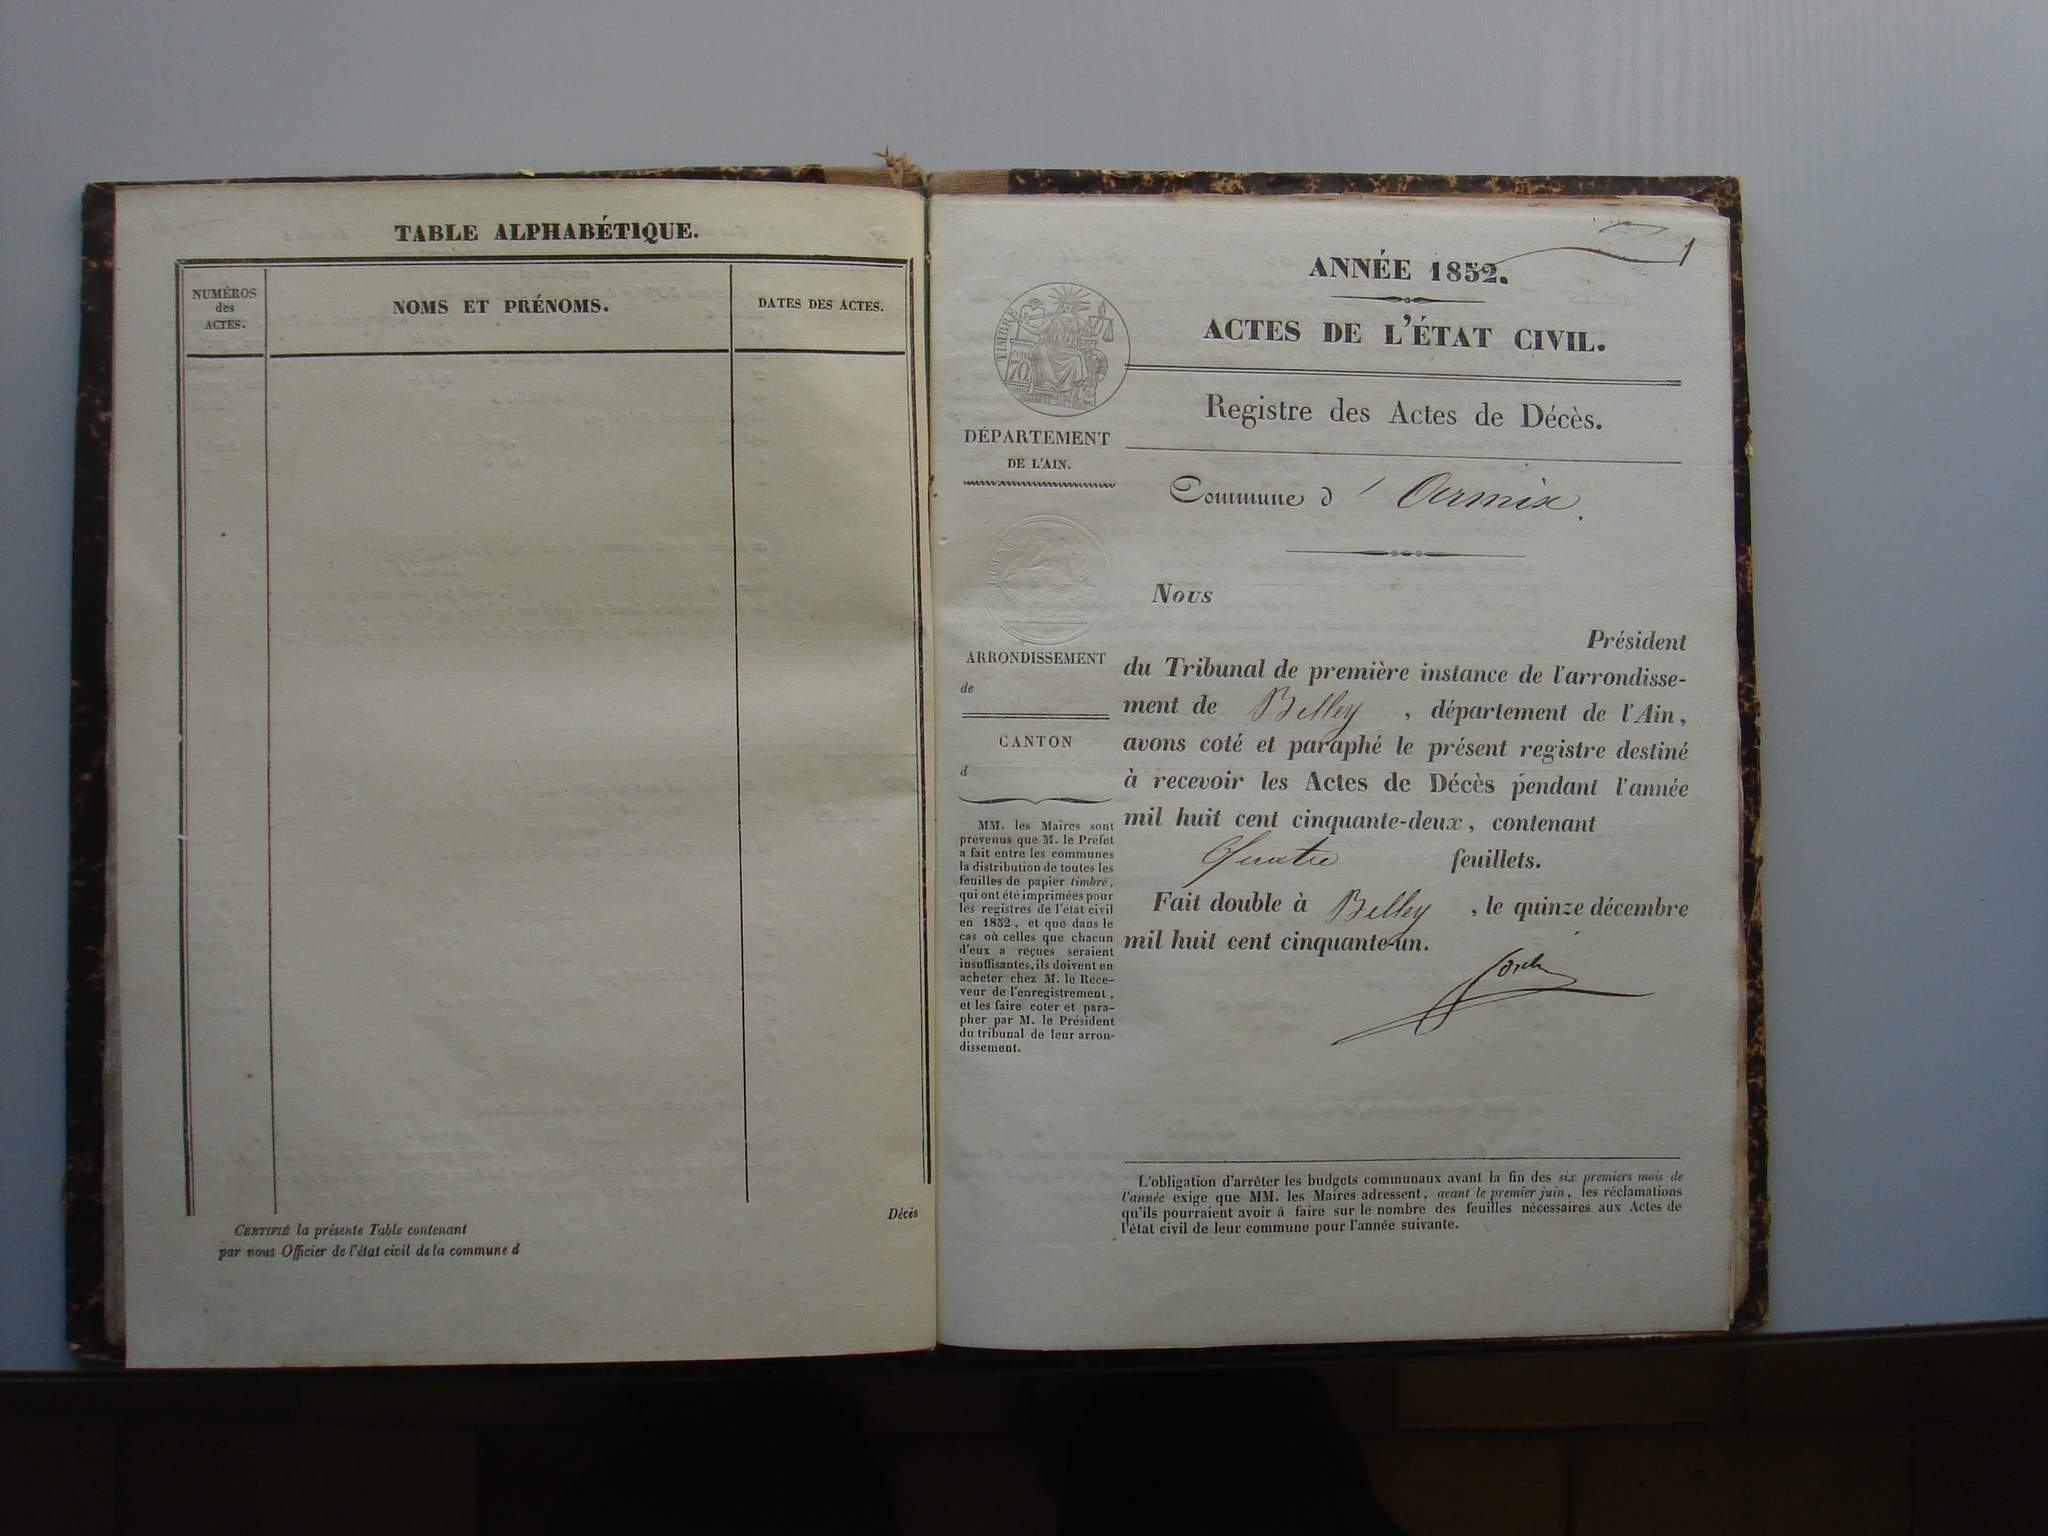 TABLE ALPHABÉTIQUE.
NUMÉROS
des
ACTES.
NOMS ET PRÉNOMS.
DATES DES ACTES.
CERTIFIÉ la présente Table contenant
par nous Officier de l'état civil de la commune d
Décès
1
ANNÉE 1852.
ACTES DE L'ÉTAT CIVIL.
Registre des Actes de Décès.
TIMBRE
70
DÉPARTEMENT
DE L'AIN.
Commune d' Armix.
ARRONDISSEMENT
de
CANTON
d
MM. les Maires sont
prévenus que M. le Préfet
a fait entre les communes
la distribution de toutes les
feuilles de papier timbré,
qui ont été imprimées pour
les registres de l'état civil
en 1852, et que dans le
cas où celles que chacun
d'eux a reçues seraient
insuffisantes, ils doivent en
acheter chez M. le Rece-
veur de l'enregistrement,
et les faire coter et para-
pher par M. le Président
du tribunal de leur arron-
dissement.
Nous
Président
du Tribunal de première instance de l'arrondisse-
ment de Belley, département de l'Ain,
avons coté et paraphé le présent registre destiné
à recevoir les Actes de Décès pendant l'année
mil huit cent cinquante-deux, contenant
Quatre feuillets.
Fait double à Belley, le quinze décembre
mil huit cent cinquante-un.
L'obligation d'arrêter les budgets communaux avant la fin des six premiers mois de
l'année exige que MM. les Maires adressent, avant le premier juin, les réclamations
qu'ils pourraient avoir à faire sur le nombre des feuilles nécessaires aux Actes de
l'état civil de leur commune pour l'année suivante.